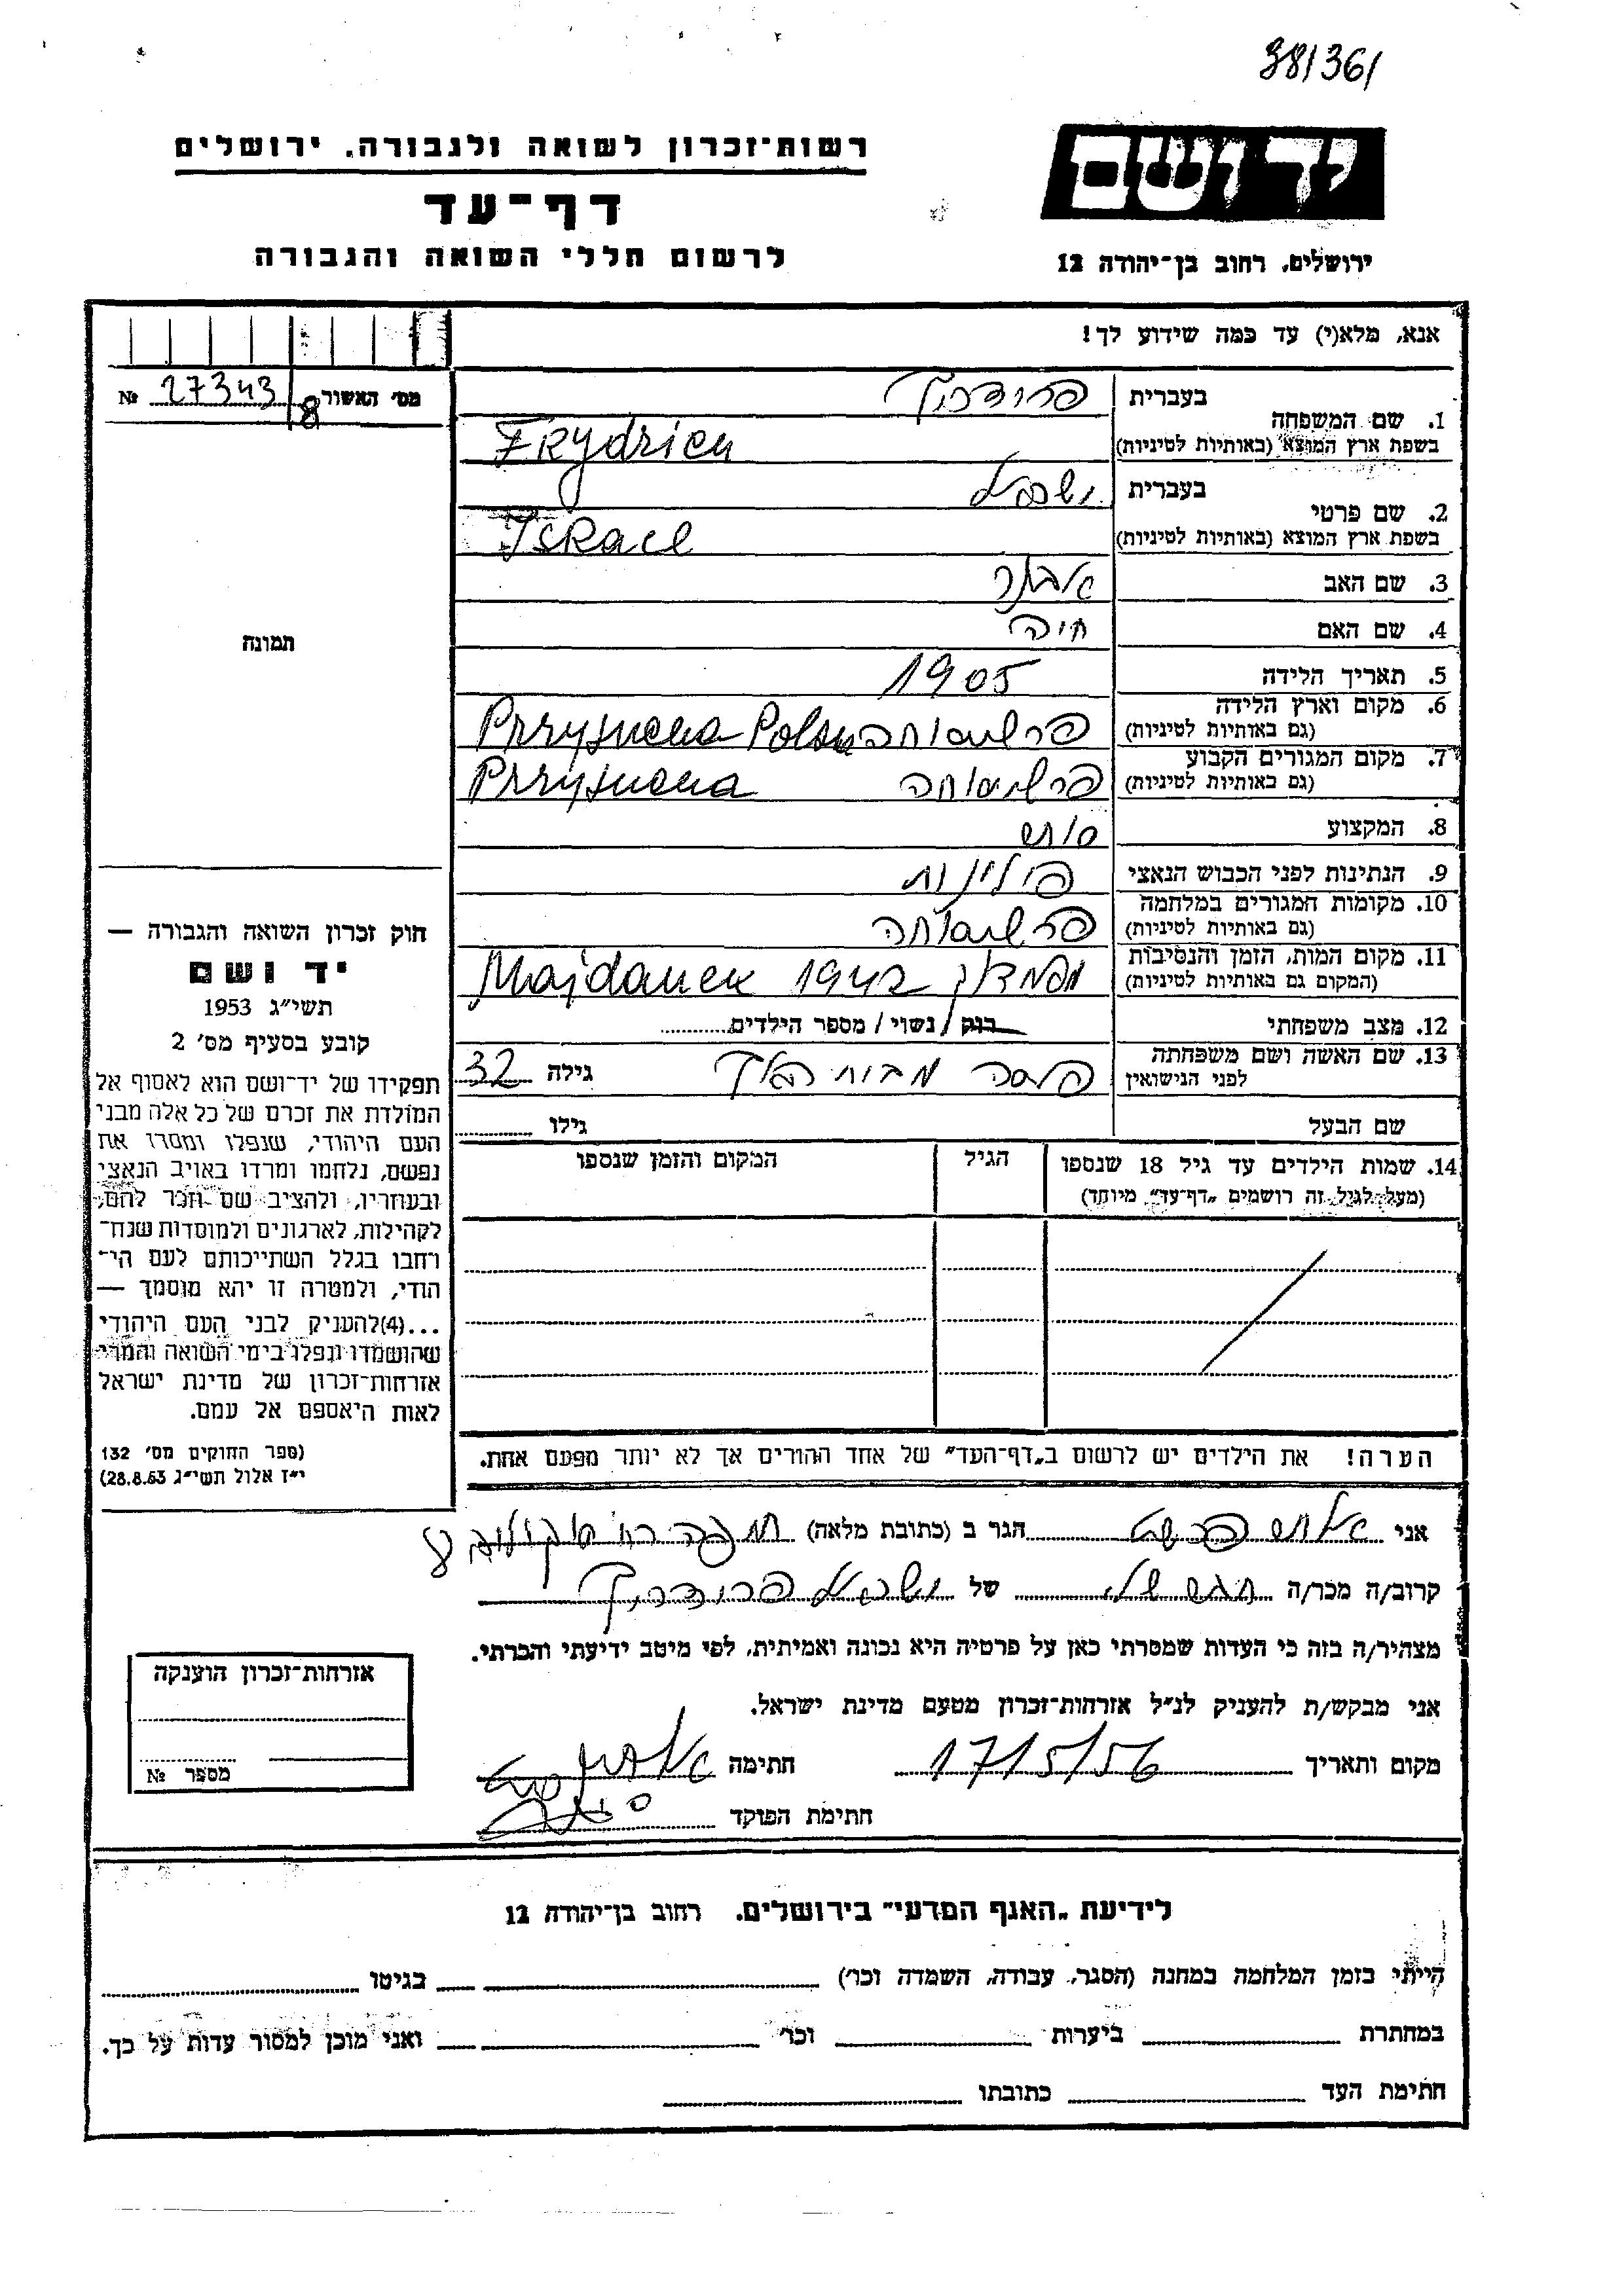 38/36/
רשות־זכרון לשואה ולגבורה, ירושלים
יד ושם
דף־עד
לרשום חללי השואה והגבורה
ירושלים, רחוב בן־יהודה 12
אנא, מלא(י) עד כמה שידוע לך!
מס׳ האשור 27343/8 №
תמונה
1. שם המשפחה
בעברית פרידריך
בשפת ארץ המוצא (באותיות לטיניות) Frydrich
2. שם פרטי
בעברית ישראל
בשפת ארץ המוצא (באותיות לטיניות) Israel
3. שם האב
4. שם האם חיה
5. תאריך הלידה 1905
6. מקום וארץ הלידה
(גם באותיות לטיניות) Przysucha
7. מקום המגורים הקבוע
(גם באותיות לטיניות) פרשיסוחה Przysucha
8. המקצוע
9. הנתינות לפני הכבוש הנאצי פולנית
10. מקומות המגורים במלחמה
(גם באותיות לטיניות) פרשיסוחה
11. מקום המות, הזמן והנסיבות
(המקום גם באותיות לטיניות) Majdanek 1942
12. מצב משפחתי רוק / נשוי / מספר הילדים
13. שם האשה ושם משפחתה
לפני הנישואין מבית גילה 32
שם הבעל גילו
14. שמות הילדים עד גיל 18 שנספו
(מעל לגיל זה רושמים „דף־עד״ מיוחד)
הגיל
המקום והזמן שנספו
הערה! את הילדים יש לרשום ב„דף־העד״ של אחד ההורים אך לא יותר מפעם אחת.
חוק זכרון השואה והגבורה —
יד ושם
תשי״ג 1953
קובע בסעיף מס׳ 2
תפקידו של יד־ושם הוא לאסוף אל
המולדת את זכרם של כל אלה מבני
העם היהודי, שנפלו ומסרו את
נפשם, נלחמו ומרדו באויב הנאצי
ובעוזריו, ולהציב שם וזכר להם,
לקהילות, לארגונים ולמוסדות שנח־
רחבו בגלל השתייכותם לעם הי־
הודי, ולמטרה זו יהא מוסמך —
...(4)להעניק לבני העם היהודי
שהושמדו ונפלו בימי השואה והמרי
אזרחות־זכרון של מדינת ישראל
לאות היאספם אל עמם.
(ספר החוקים מס׳ 132
י״ז אלול תשי״ג 28.8.53)
אני הגר ב (כתובת מלאה)
קרוב/ה מכר/ה של ישראל פרידריך
מצהיר/ה בזה כי העדות שמסרתי כאן על פרטיה היא נכונה ואמיתית, לפי מיטב ידיעתי והכרתי.
אני מבקש/ת להעניק לנ״ל אזרחות־זכרון מטעם מדינת ישראל.
מקום ותאריך 17/5/56 חתימה
חתימת הפוקד
אזרחות־זכרון הוענקה
מספר №
לידיעת „האגף המדעי״ בירושלים, רחוב בן־יהודה 12
הייתי בזמן המלחמה במחנה (הסגר, עבודה, השמדה וכו׳) בגיטו
במחתרת ביערות וכו׳ ואני מוכן למסור עדות על כך.
חתימת העד כתובתו